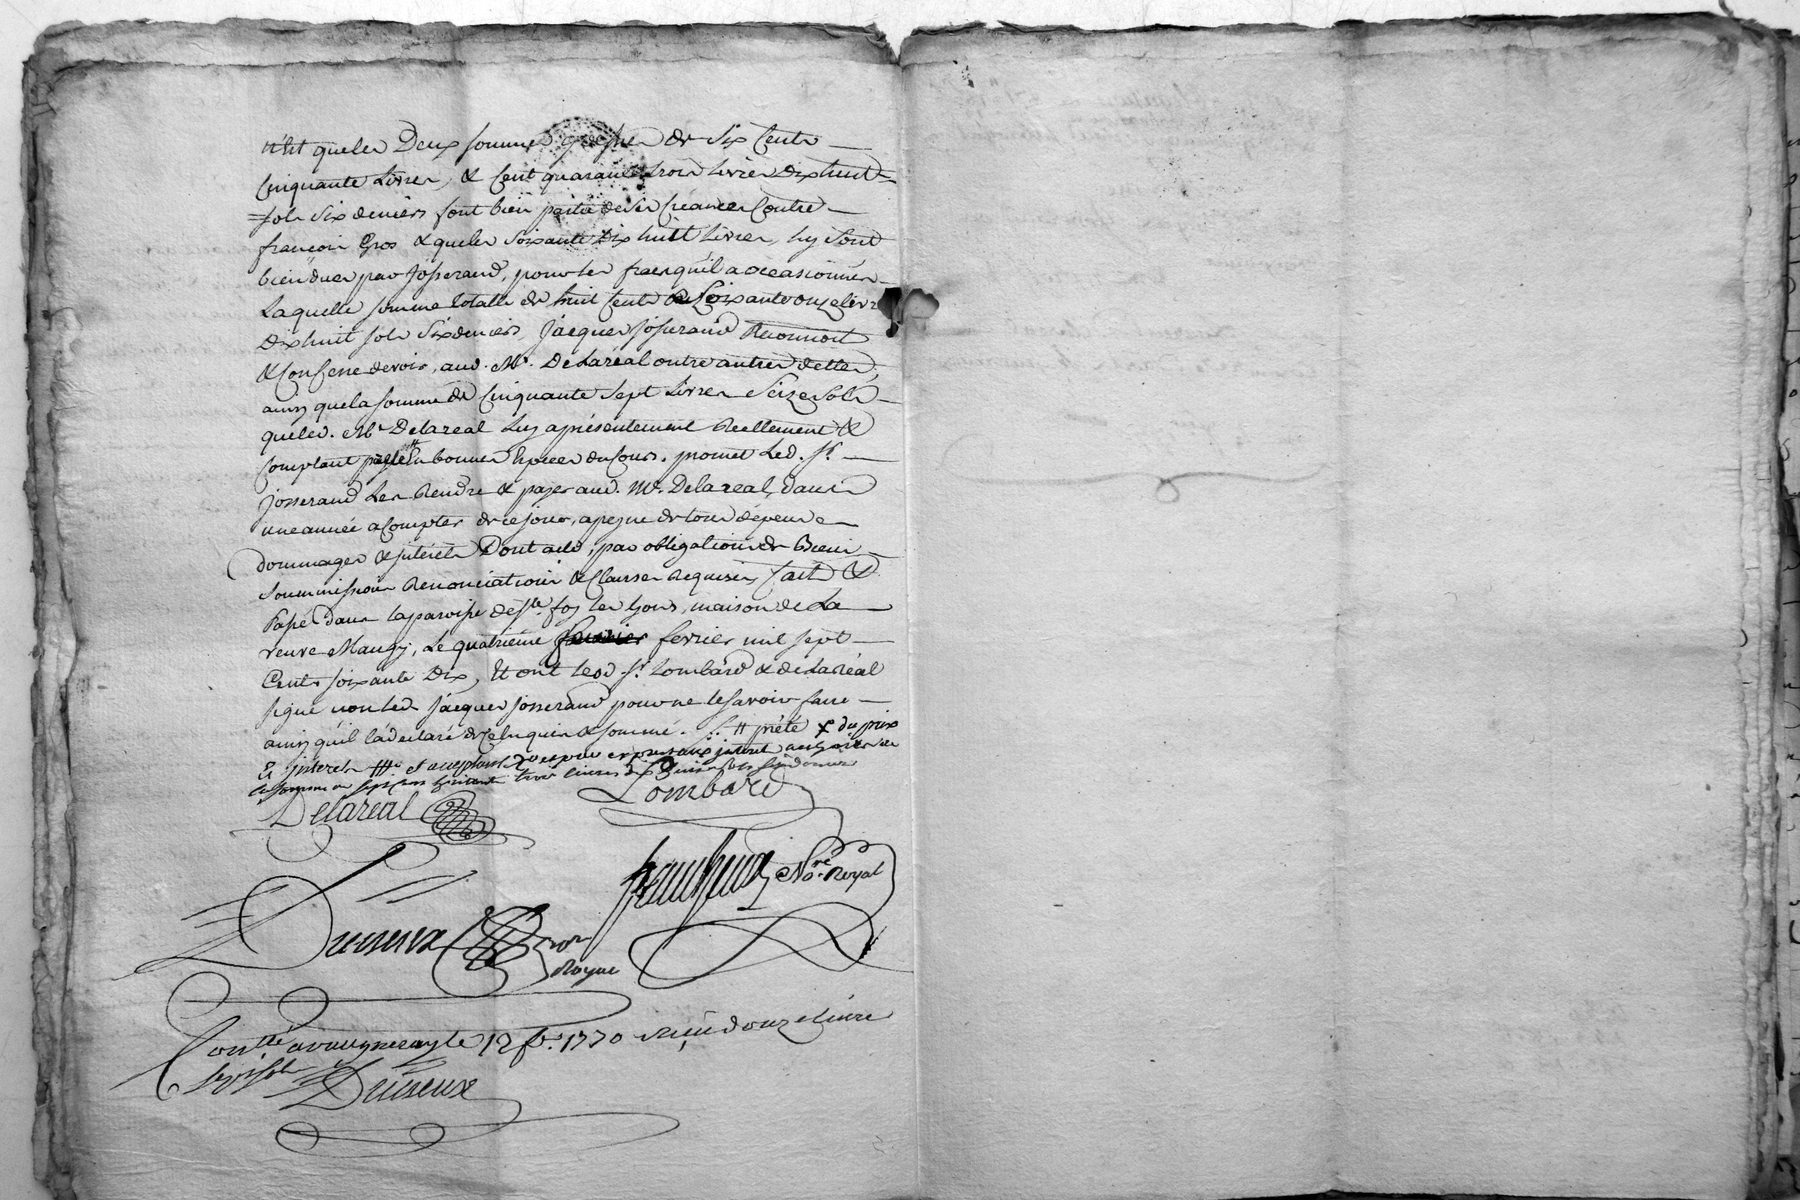 que les Deux sommes de Six Cents
Cinquante Livres, & Cent quarante trois Livres Dix huit
sols Six deniers font bien partie de ses Creances Contre
françois Gros & que les Soixante Dix huit Livres, luy sont
bien Dues par Josserand, pour les frais qu'il a occasionnés
Laquelle somme totalle de huit Cents Soixante onze livres
Dix huit sols Six deniers, Jacques Josserand Reconnoit
& Confesse devoir, aud. Mr. Delareal outre autres dettes,
ainsy que la somme de Cinquante Sept Livres Seize sols
que led. Mr. Delareal Luy a présentement Reellement &
Comptant en bonnes Especes du Cours. promet Led. Sr.
Josserand Les Rendre & payer aud. Mr. Delareal, dans
une année a Compter de ce jour, a peyne de tous dépens
dommages & interéts Dont acte, par obligations de Biens
Soummissions Renonciations & Clauses Requises, fait &
Passé dans la paroisse de Ste. foy les Lyons, maison de La
veuve Maugy, Le quatrieme fevrier mil sept
Cents soixante Dix, Et ont lesd. Srs. Lombard & de Lareal
signé non led. Jacques Josserand pour ne le savoir faire
ainsy qu'il l'a declaré de ce enquis & sommé. preté du prix
& interets et acceptant
la somme de sept cens trois livres dix huit sols six deniers
Delareal Lombard
Nore. Royal
Duiseux
Royne
Contllé a vaugneray le 12 fr. 1770 Reçu douze livre
Six sols
Duiseux